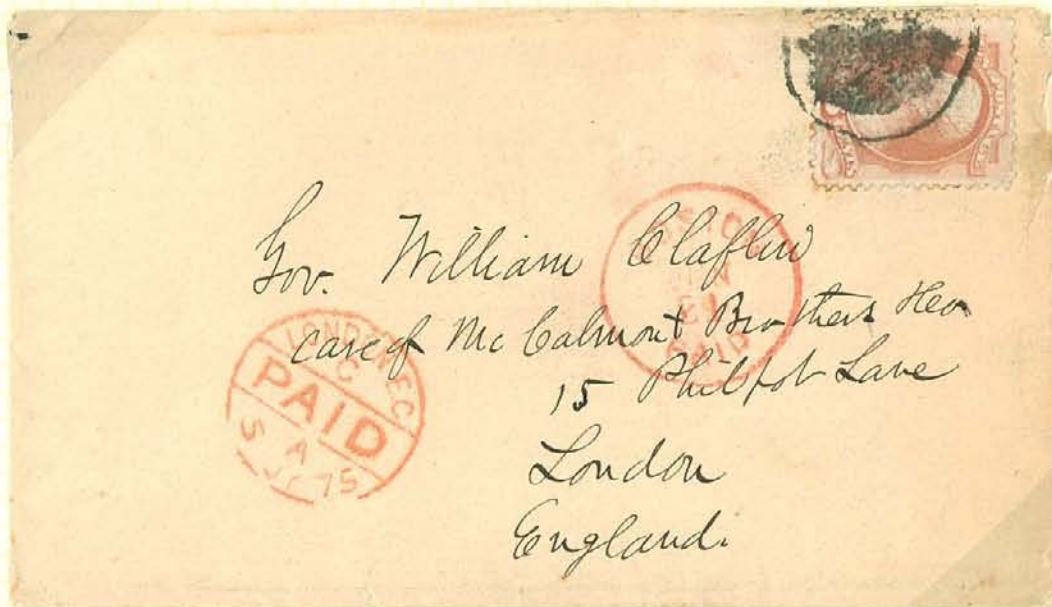 Gov. William Claflin
care of McCalmont Brothers &Co
15 Philpot Lane
London
England.
LONDON E.C
C
PAID
A
5 JY 75
BOSTON
JUN
23
PAID